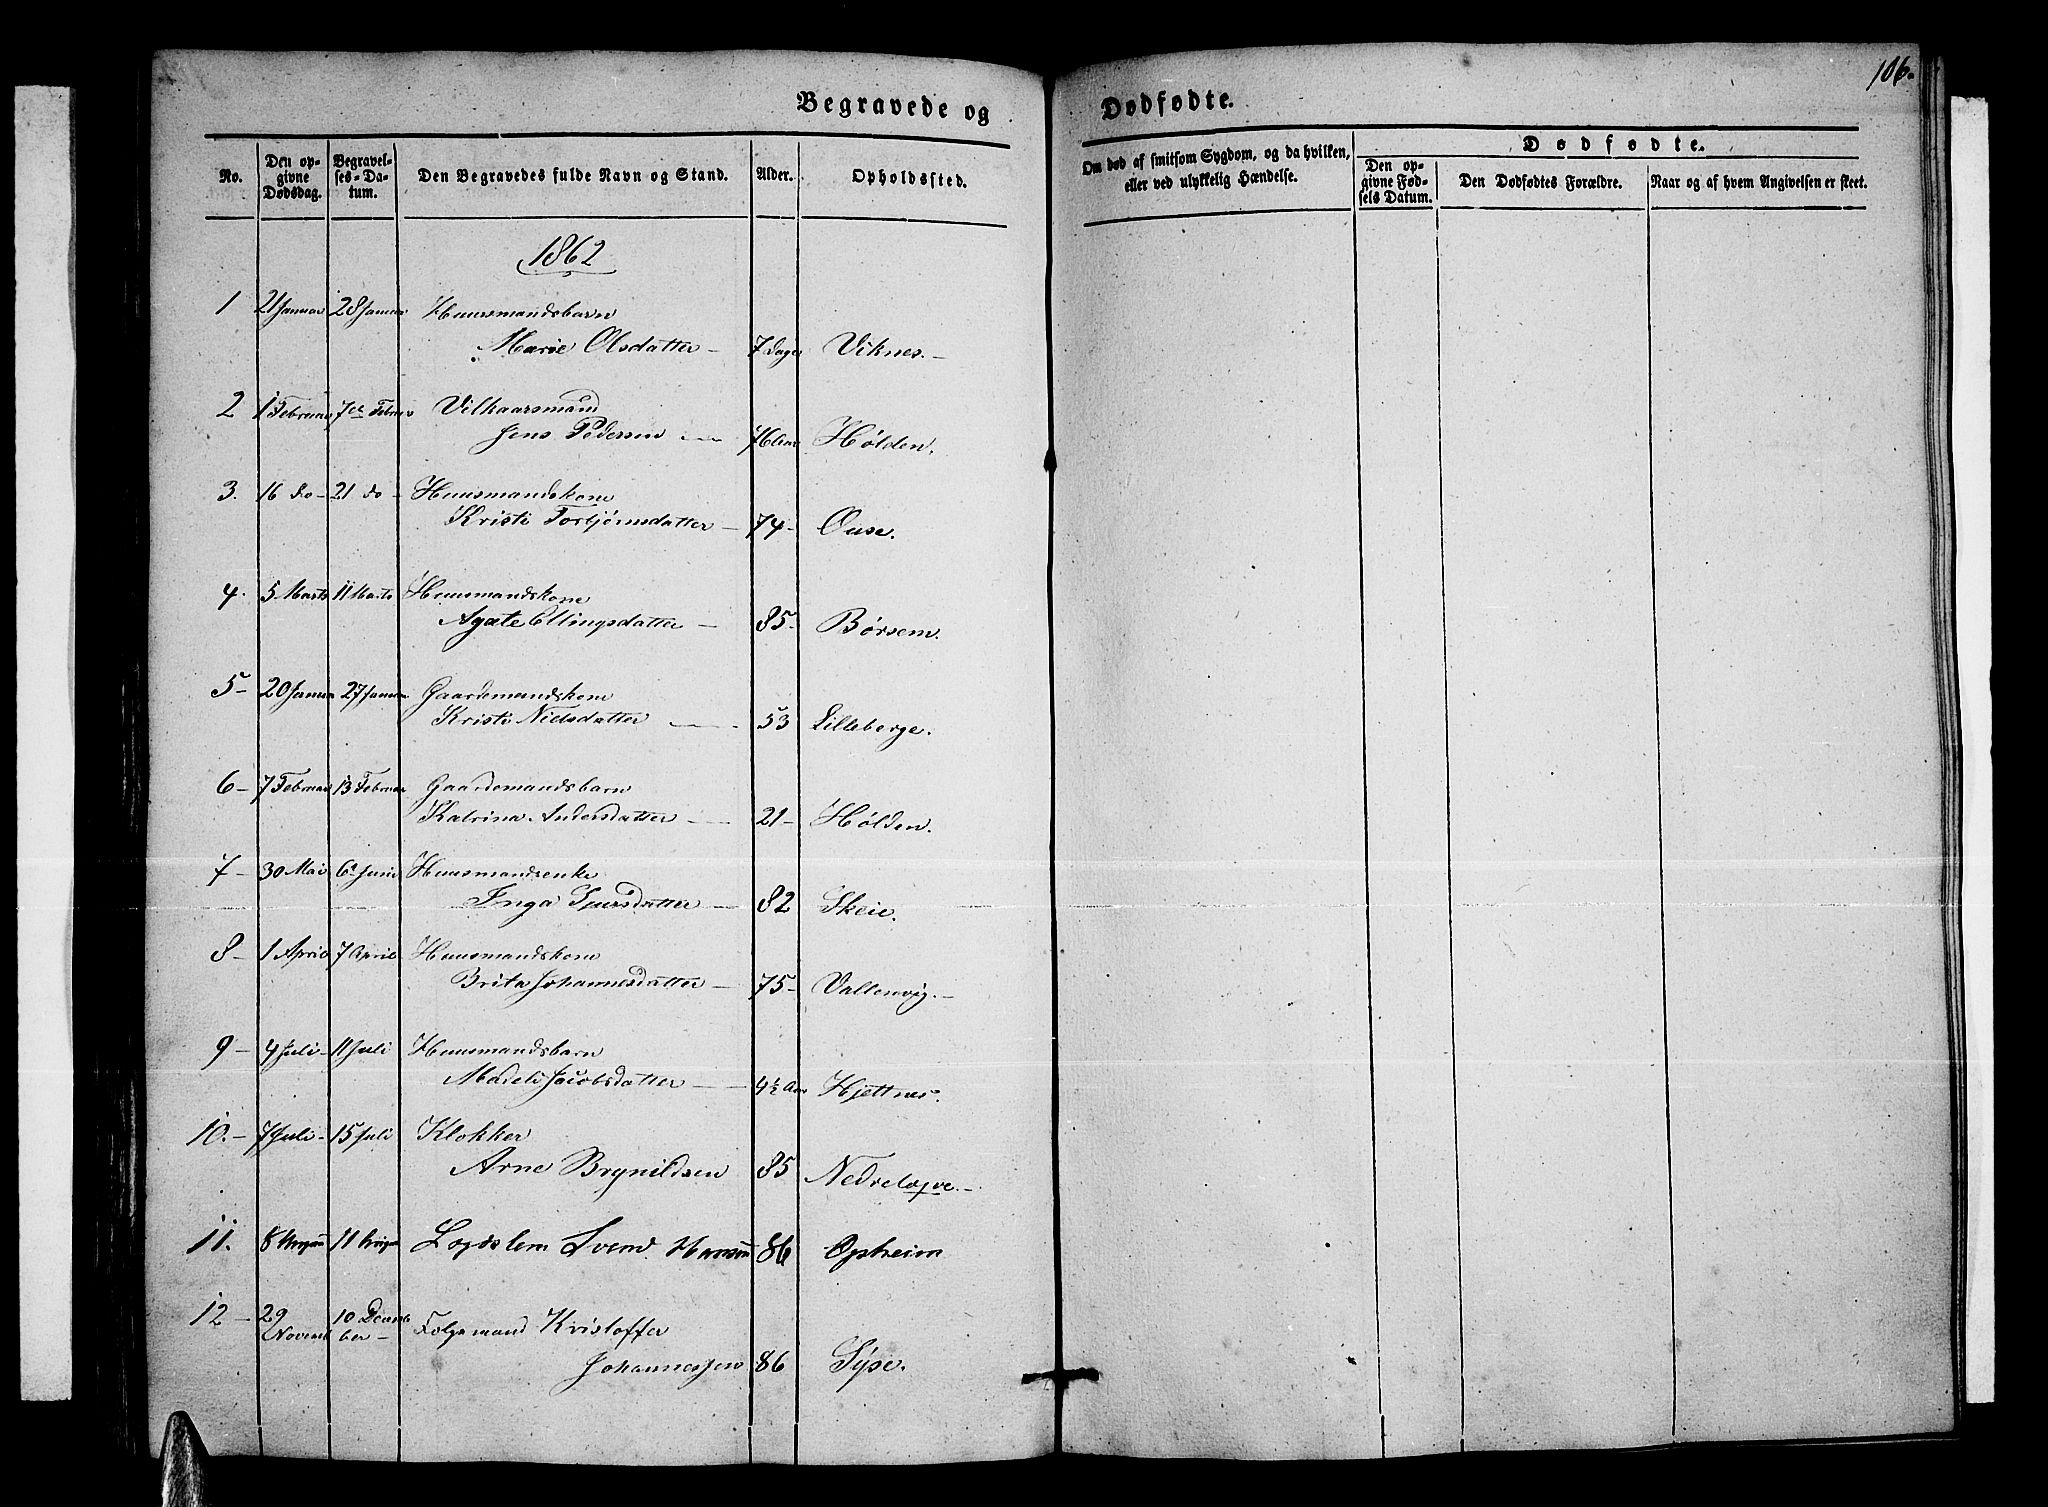 106.
Begravede og Dødfødte.
No.
Den opgivne Dødsdag.
Begravelses-Datum.
Den Begravedes fulde Navn og Stand.
Alder.
Opholdssted.
Om død af smitsom Sygdom, og da hvilken, eller ved ulykkelig Hændelse.
Dødfødte.
Den opgivne Fødsels Datum.
Den Dødfødtes Forældre.
Naar og af hvem Angivelsen er skeet.
1862
1 21 Januar 28 Januar Huusmandsbarn
Marie Olsdatter – 7 Dage Viknes. –
2 1 Februar 7de Februar Vilkaarsmand
Jens Pedersen 76 Aar Hølden.
3. 16 do – 21 do – Huusmandskone
Kristi Torbjørnsdatter – 74 – Ouse.
4. 5 Marts 11 Marts Huusmandskone
Agate Ellingsdatter – 85. Børsem.
5 – 20 Januar 27 Januar Gaardemandskone
Kristi Nielsdatter – 53 Lilleberge.
6 – 7 Februar 13 Februar Gaardemandsbarn
Katrina Andersdatter – 21 – Hølden.
7 – 30 Mai 6 Juni Huusmandsenke
Inga Sjursdatter – 82 Skeie.
8 – 1 April 7 April Huusmandskone
Brita Johannesdatter – 75 – Vallenvig. –
9 – 4 Juli – 11 Juli Huusmandsbarn
Madeli Jacobsdatter – 4½ Aar Hjeltnes.
10. – 7 Juli – 15 Juli Klokker
Arne Brynildsen 85 Nedre
11. 8 11 Svend Hansen 86 Opheim
12 – 29 10 Decemb
Novemb ber – Kristoffer
Johannessen 86 Syse.